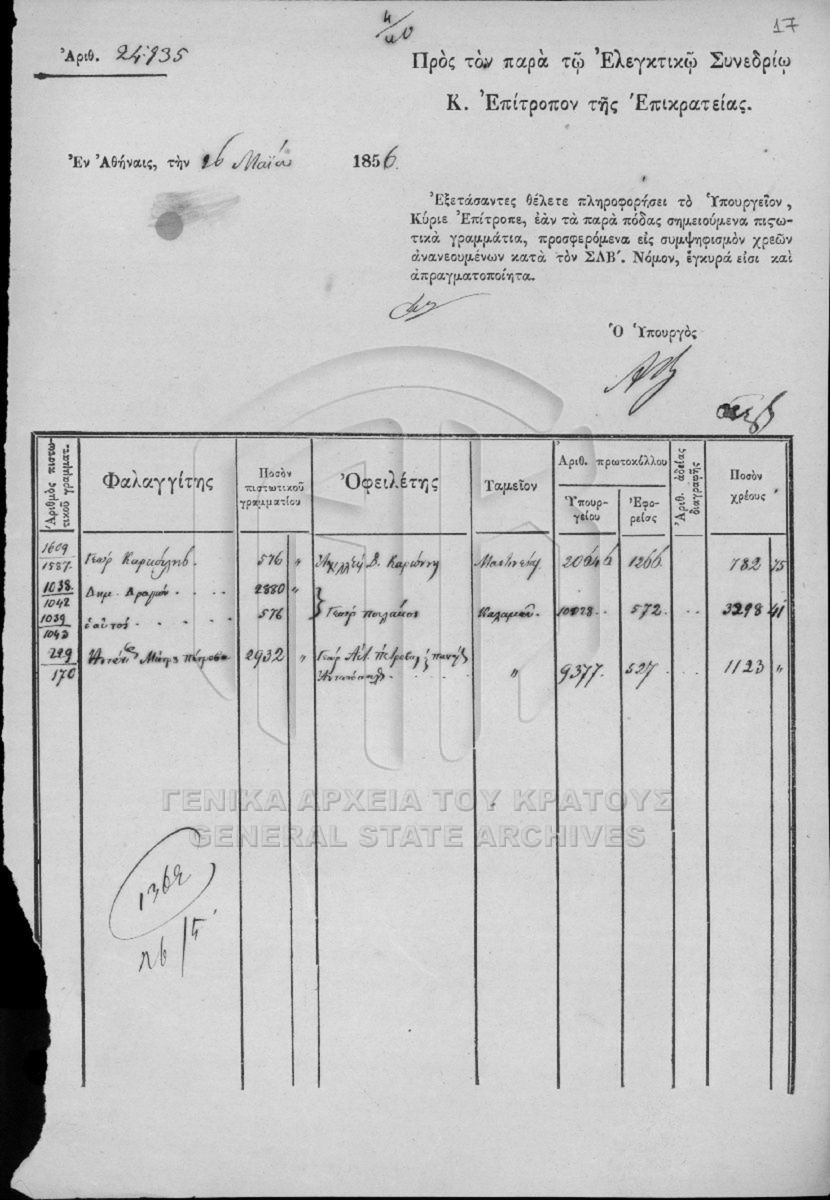 17
4/20
Ἀριθ. 24935
Πρὸς τὸν παρὰ τῷ Ἐλεγκτικῷ Συνεδρίῳ
Κ. Ἐπίτροπον τῆς Ἐπικρατείας.
Ἐν Ἀθήναις, τὴν 26 Μαΐου 1856.
Ἐξετάσαντες θέλετε πληροφορήσει τὸ Ὑπουργεῖον,
Κύριε Ἐπίτροπε, ἐὰν τὰ παρὰ πόδας σημειούμενα πιστω-
τικὰ γραμμάτια, προσφερόμενα εἰς συμψηφισμὸν χρεῶν
ἀνανεουμένων κατὰ τὸν ΣΛΒ΄. Νόμον, ἔγκυρά εἰσι καὶ
ἀπραγματοποίητα.
Ὁ Ὑπουργὸς
Ἀριθμὸς πιστω-
τικοῦ γραμματ.
Φαλαγγίτης
Ποσὸν
πιστωτικοῦ
γραμματίου
Ὀφειλέτης
Ταμεῖον
Ἀριθ. πρωτοκόλλου
Ὑπουρ-
γείου
Ἐφο-
ρείας
Ἀριθ. ἀδείας
διαγραφῆς
Ποσὸν
χρέους
1609
1587. Γεώρ 576 " 1266 782 75
1038.
1042 Δημ. 2880 "
1039
1043 ἑαυτοῦ 576 Γεώρ Καλαμῶν 572 3298 41
229
170 2932 " Γεώρ " 9377 527 1123 "
ΓΕΝΙΚΑ ΑΡΧΕΙΑ ΤΟΥ ΚΡΑΤΟΥΣ
GENERAL STATE ARCHIVES
26/5